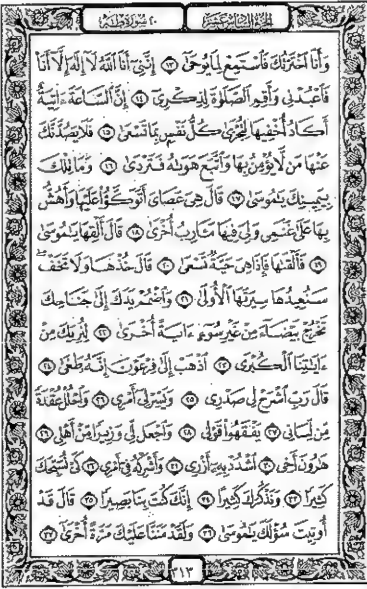 الجزء السادس عشر ٢٠ سورة طه
وَأَنَا اخْتَرْتُكَ فَاسْتَمِعْ لِمَا يُوحَىٰ ١٣ إِنَّنِي أَنَا اللَّهُ لَا إِلَٰهَ إِلَّا أَنَا
فَاعْبُدْنِي وَأَقِمِ الصَّلَوٰةَ لِذِكْرِي ١٤ إِنَّ السَّاعَةَ ءَاتِيَةٌ
أَكَادُ أُخْفِيهَا لِتُجْزَىٰ كُلُّ نَفْسٍ بِمَا تَسْعَىٰ ١٥ فَلَا يَصُدَّنَّكَ
عَنْهَا مَن لَّا يُؤْمِنُ بِهَا وَاتَّبَعَ هَوَىٰهُ فَتَرْدَىٰ ١٦ وَمَا تِلْكَ
بِيَمِينِكَ يَٰمُوسَىٰ ١٧ قَالَ هِيَ عَصَايَ أَتَوَكَّؤُا عَلَيْهَا وَأَهُشُّ
بِهَا عَلَىٰ غَنَمِي وَلِيَ فِيهَا مَـَٔارِبُ أُخْرَىٰ ١٨ قَالَ أَلْقِهَا يَٰمُوسَىٰ
١٩ فَأَلْقَىٰهَا فَإِذَا هِيَ حَيَّةٌ تَسْعَىٰ ٢٠ قَالَ خُذْهَا وَلَا تَخَفْ ۖ
سَنُعِيدُهَا سِيرَتَهَا الْأُولَىٰ ٢١ وَاضْمُمْ يَدَكَ إِلَىٰ جَنَاحِكَ
تَخْرُجْ بَيْضَاءَ مِنْ غَيْرِ سُوءٍ ءَايَةً أُخْرَىٰ ٢٢ لِنُرِيَكَ مِنْ
ءَايَٰتِنَا الْكُبْرَى ٢٣ اذْهَبْ إِلَىٰ فِرْعَوْنَ إِنَّهُ طَغَىٰ ٢٤
قَالَ رَبِّ اشْرَحْ لِي صَدْرِي ٢٥ وَيَسِّرْ لِي أَمْرِي ٢٦ وَاحْلُلْ عُقْدَةً
مِّن لِّسَانِي ٢٧ يَفْقَهُوا قَوْلِي ٢٨ وَاجْعَل لِّي وَزِيرًا مِّنْ أَهْلِي ٢٩
هَٰرُونَ أَخِي ٣٠ اشْدُدْ بِهِ أَزْرِي ٣١ وَأَشْرِكْهُ فِي أَمْرِي ٣٢ كَيْ نُسَبِّحَكَ
كَثِيرًا ٣٣ وَنَذْكُرَكَ كَثِيرًا ٣٤ إِنَّكَ كُنتَ بِنَا بَصِيرًا ٣٥ قَالَ قَدْ
أُوتِيتَ سُؤْلَكَ يَٰمُوسَىٰ ٣٦ وَلَقَدْ مَنَنَّا عَلَيْكَ مَرَّةً أُخْرَىٰ ٣٧
٣١٣